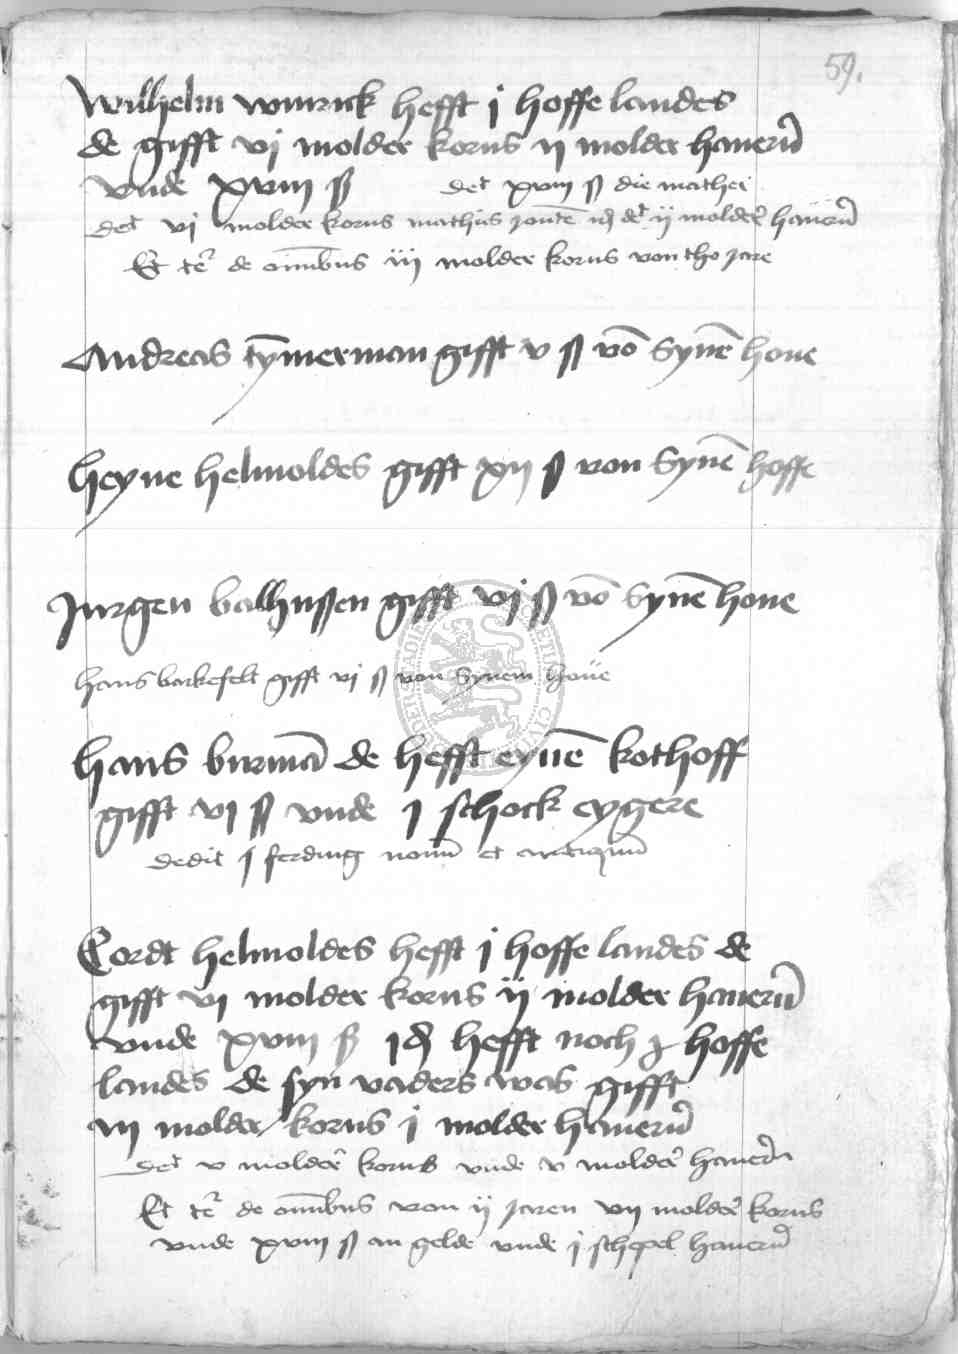 59.
Wilhelm winrick hefft j hoffe landes
de gifft vj molder korns ij molder haverū
vnde xviij ß det xviij ß die mathei
det vj molder korns mathīs ij molder haverū
Et te͂ de omībus iij molder korns von tho jare
Andreas tȳmerman gifft v ß vō synē hove
heyne helmoldes gifft xij ß von synē hoffe
Jurgen balhußen gifft vj ß vō synē hove
hans barkefelt gifft vj ß von synem hove
hans burmā de hefft eynē kothoff
gifft vj ß vnde j schock eygere
dedit j ferding novū et antiquū
Cordt helmoldes hefft j hoffe landes de
gifft vj molder korns ij molder haverū
vnde xviij ß hefft noch hoffe
landes de syn vaders was gifft
iij molder korns j molder haverū
det v molder korns vnde v molder haverū
Et te͂ de omībus von ij jaren vij molder korns
vnde xviij ß an gelde vnde j schepel haverū